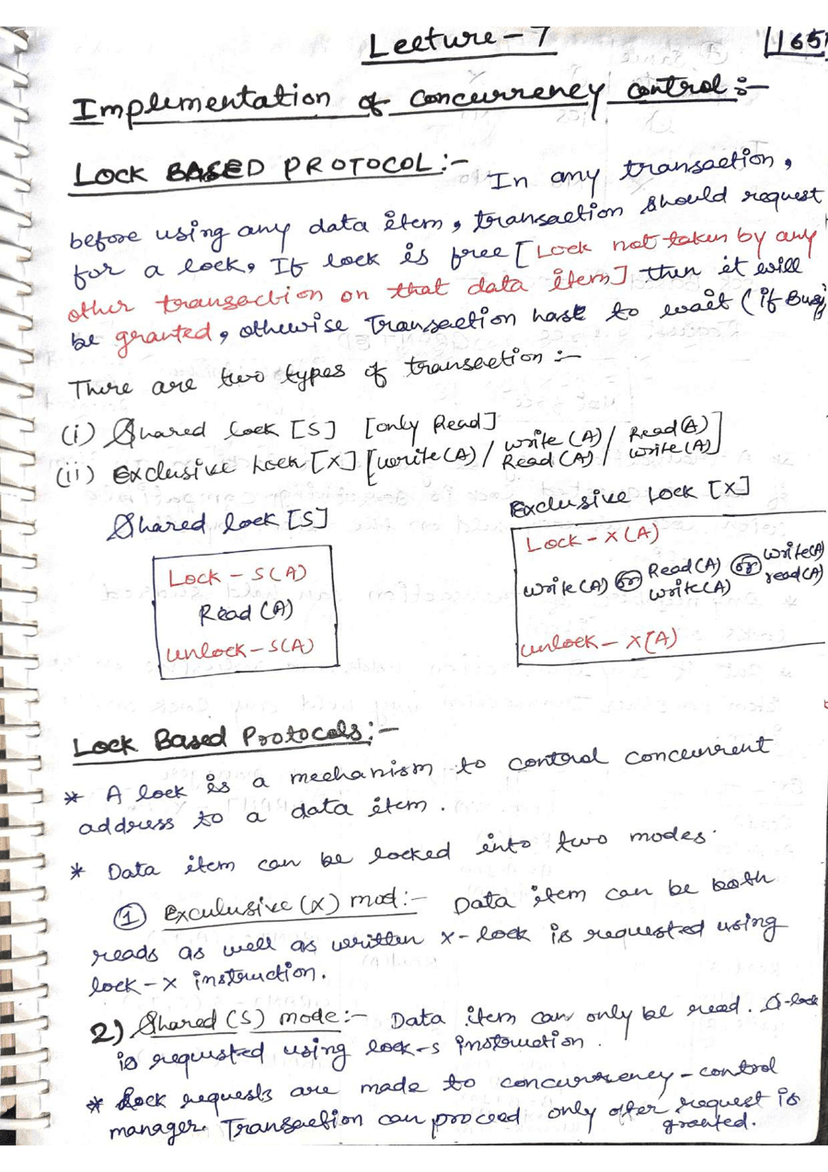 Lecture - 7
1165
Implementation of concurrency control :-
LOCK BASED PROTOCOL :- In any transaction,
before using any data item, transaction should request
for a lock, If lock is free [Lock not taken by any
other transaction on that data item] then it will
be granted, otherwise Transaction hast to wait (if Busy)
There are two types of transaction :-
(i) Shared lock [S] [only Read]
(ii) Exclusive Lock [X] [write(A) / write(A) Read(A) / Read(A) write(A)]
Shared lock [S]
Exclusive Lock [X]
Lock - S(A)
Read (A)
unlock - S(A)
Lock - X(A)
write(A) or Read(A) write(A) or write(A) read(A)
unlock - X(A)
Lock Based Protocols :-
* A lock is a mechanism to control concurrent
address to a data item.
* Data item can be locked into two modes.
① Exculusive (X) mod :- Data item can be both
reads as well as written X-lock is requested using
lock-X instruction.
2) Shared (S) mode :- Data item can only be read. S-lock
is requested using lock-s instruction.
* Lock requests are made to concurrency-control
manager. Transaction can proceed only after request is
granted.